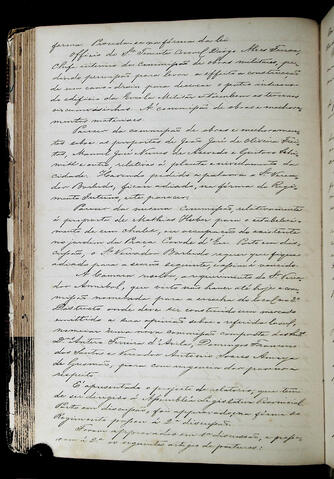 forma. Proceda-se na fórma da lei
Officio do Snr. Tenente Coronel Diogo Alves Ferraz,
Chefe interino da Commissão de obras militares, pe-
dindo permissão para levar a effeito a construcção
de um cano de
do edificio da Escola Militar e tambem os terrenos
circumvisinhos. A commissão de obras e melhora-
mentos materiaes.
Parecer da commissão de obras e melhoramen-
tos sobre as propostas de João José de Oliveira Frei-
tas, Manoel de Azevedo e Caetano
relativas á planta e nivelamento da
cidade. Havendo pedido a palavra o Snr. Verea-
dor Barbedo, ficou adiado, na fórma do Regi-
mento Interno, este parecer.
Parecer da mesma Commissão, relativamente
á proposta de Mathias para o estabeleci-
mento de um chalet, ou occupação do existente
no jardim da Praça Conde d'Eu. Posto em dis-
cussão, o Snr. Vereador Barbedo requer que fique
adiado para a sessão seguinte, o
A Camara resolve, a requerimento do Snr. Verea-
dor Annibal, que visto não haver até hoje a com-
missão nomeada para a escolha do local no 2º
Districto onde deve ser construido um mercado
emittido a sua opinião sobre o referido local,
nomear uma outra commissão composta dos Snrs.
Domingos
dos Santos e Vereador Antonio Soares Amaya
de Gusmão, para com urgencia dar parecer a
respeito.
É apresentado o projecto de relatorio, que tem
de ser dirigido á Assembléa Legislativa Provincial
Posto em discussão, foi approvado, na fórma do
Regimento passou á 2ª discussão.
Foram approvados em 1ª discussão, e passa-
ram á 2ª os seguintes artigos de posturas: